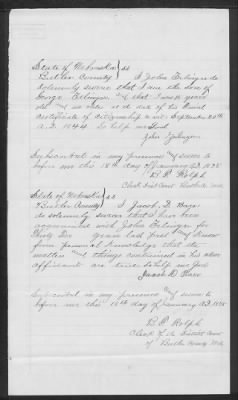 State of Nebraska } ss
Butler County } I John
solemnly swear that I am the son of
George and that I was years
old at date of his final
certificate of citizenship to wit: September 20th
A.D. 1844 So help me God
John
Subscribed in my presence and sworn to
before me this 18th day of January A.D. 1878
Clerk Dist Court Butler Co Neb
State of Nebraska } ss
Butler County } I Jacob Hays
do solemnly swear that I have been
acquainted with John for
years last past and know
from personal knowledge that the
matters and things contained in his above
affidavit are true So help me God
Subscribed in my presence and sworn to
before me this 18th day of January A.D. 1878
Clerk of the District Court
of Butler County Neb